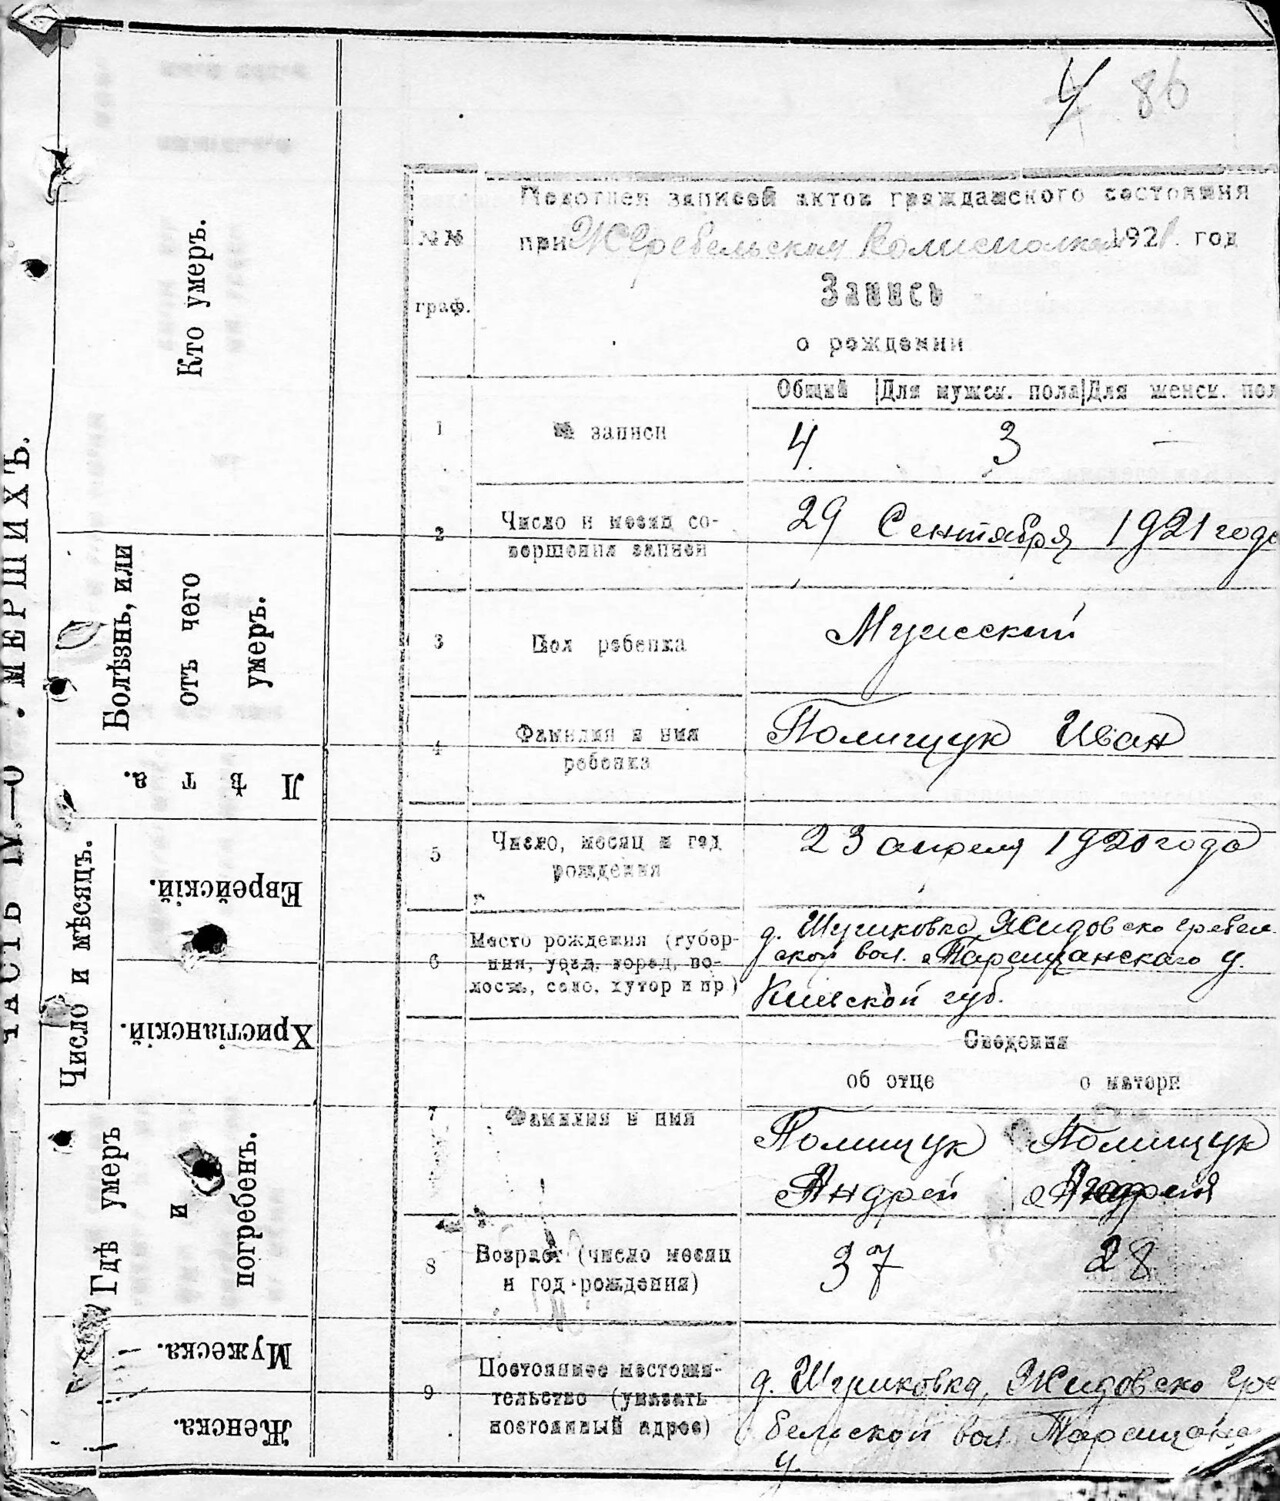 ЧАСТЬ IV.—О МЕРШИХЪ.
Кто умеръ.
Болѣзнь, или
отъ чего
умеръ.
Лѣта.
Число и мѣсяцъ.
Еврейскій.
Христіанскій.
Гдѣ умеръ
и
погребенъ.
Мужеска.
Женска.
86
№№
граф.
записей актов гражданского состояния
при 1921. год
Запись
о рождении
Общий Для мужск. пола Для женск. пол
1 № записи 4 3 —
2 Число и месяц со-
вершения записи
29 Сентября 1921 года
3 Пол ребенка Мужеский
4 Фамилия и имя
ребенка
Полищук Иван
5 Число, месяц и год
рождения
23 апреля 1920 года
6 Место рождения (губер-
ния, уезд, город, во-
лость, село, хутор и пр)
д. Жидовско гребел
ской вол. Таращанскаго у.
Киевской губ.
Сведения
об отце о матери
7 Фамилия и имя
Полищук Полищук
Андрей
8 Возраст (число месяц
и год рождения)
37 28
9 Постоянное местожи-
тельство (указать
постоянный адрес)
д. Жидовско гре
бельской вол. Таращан
у.